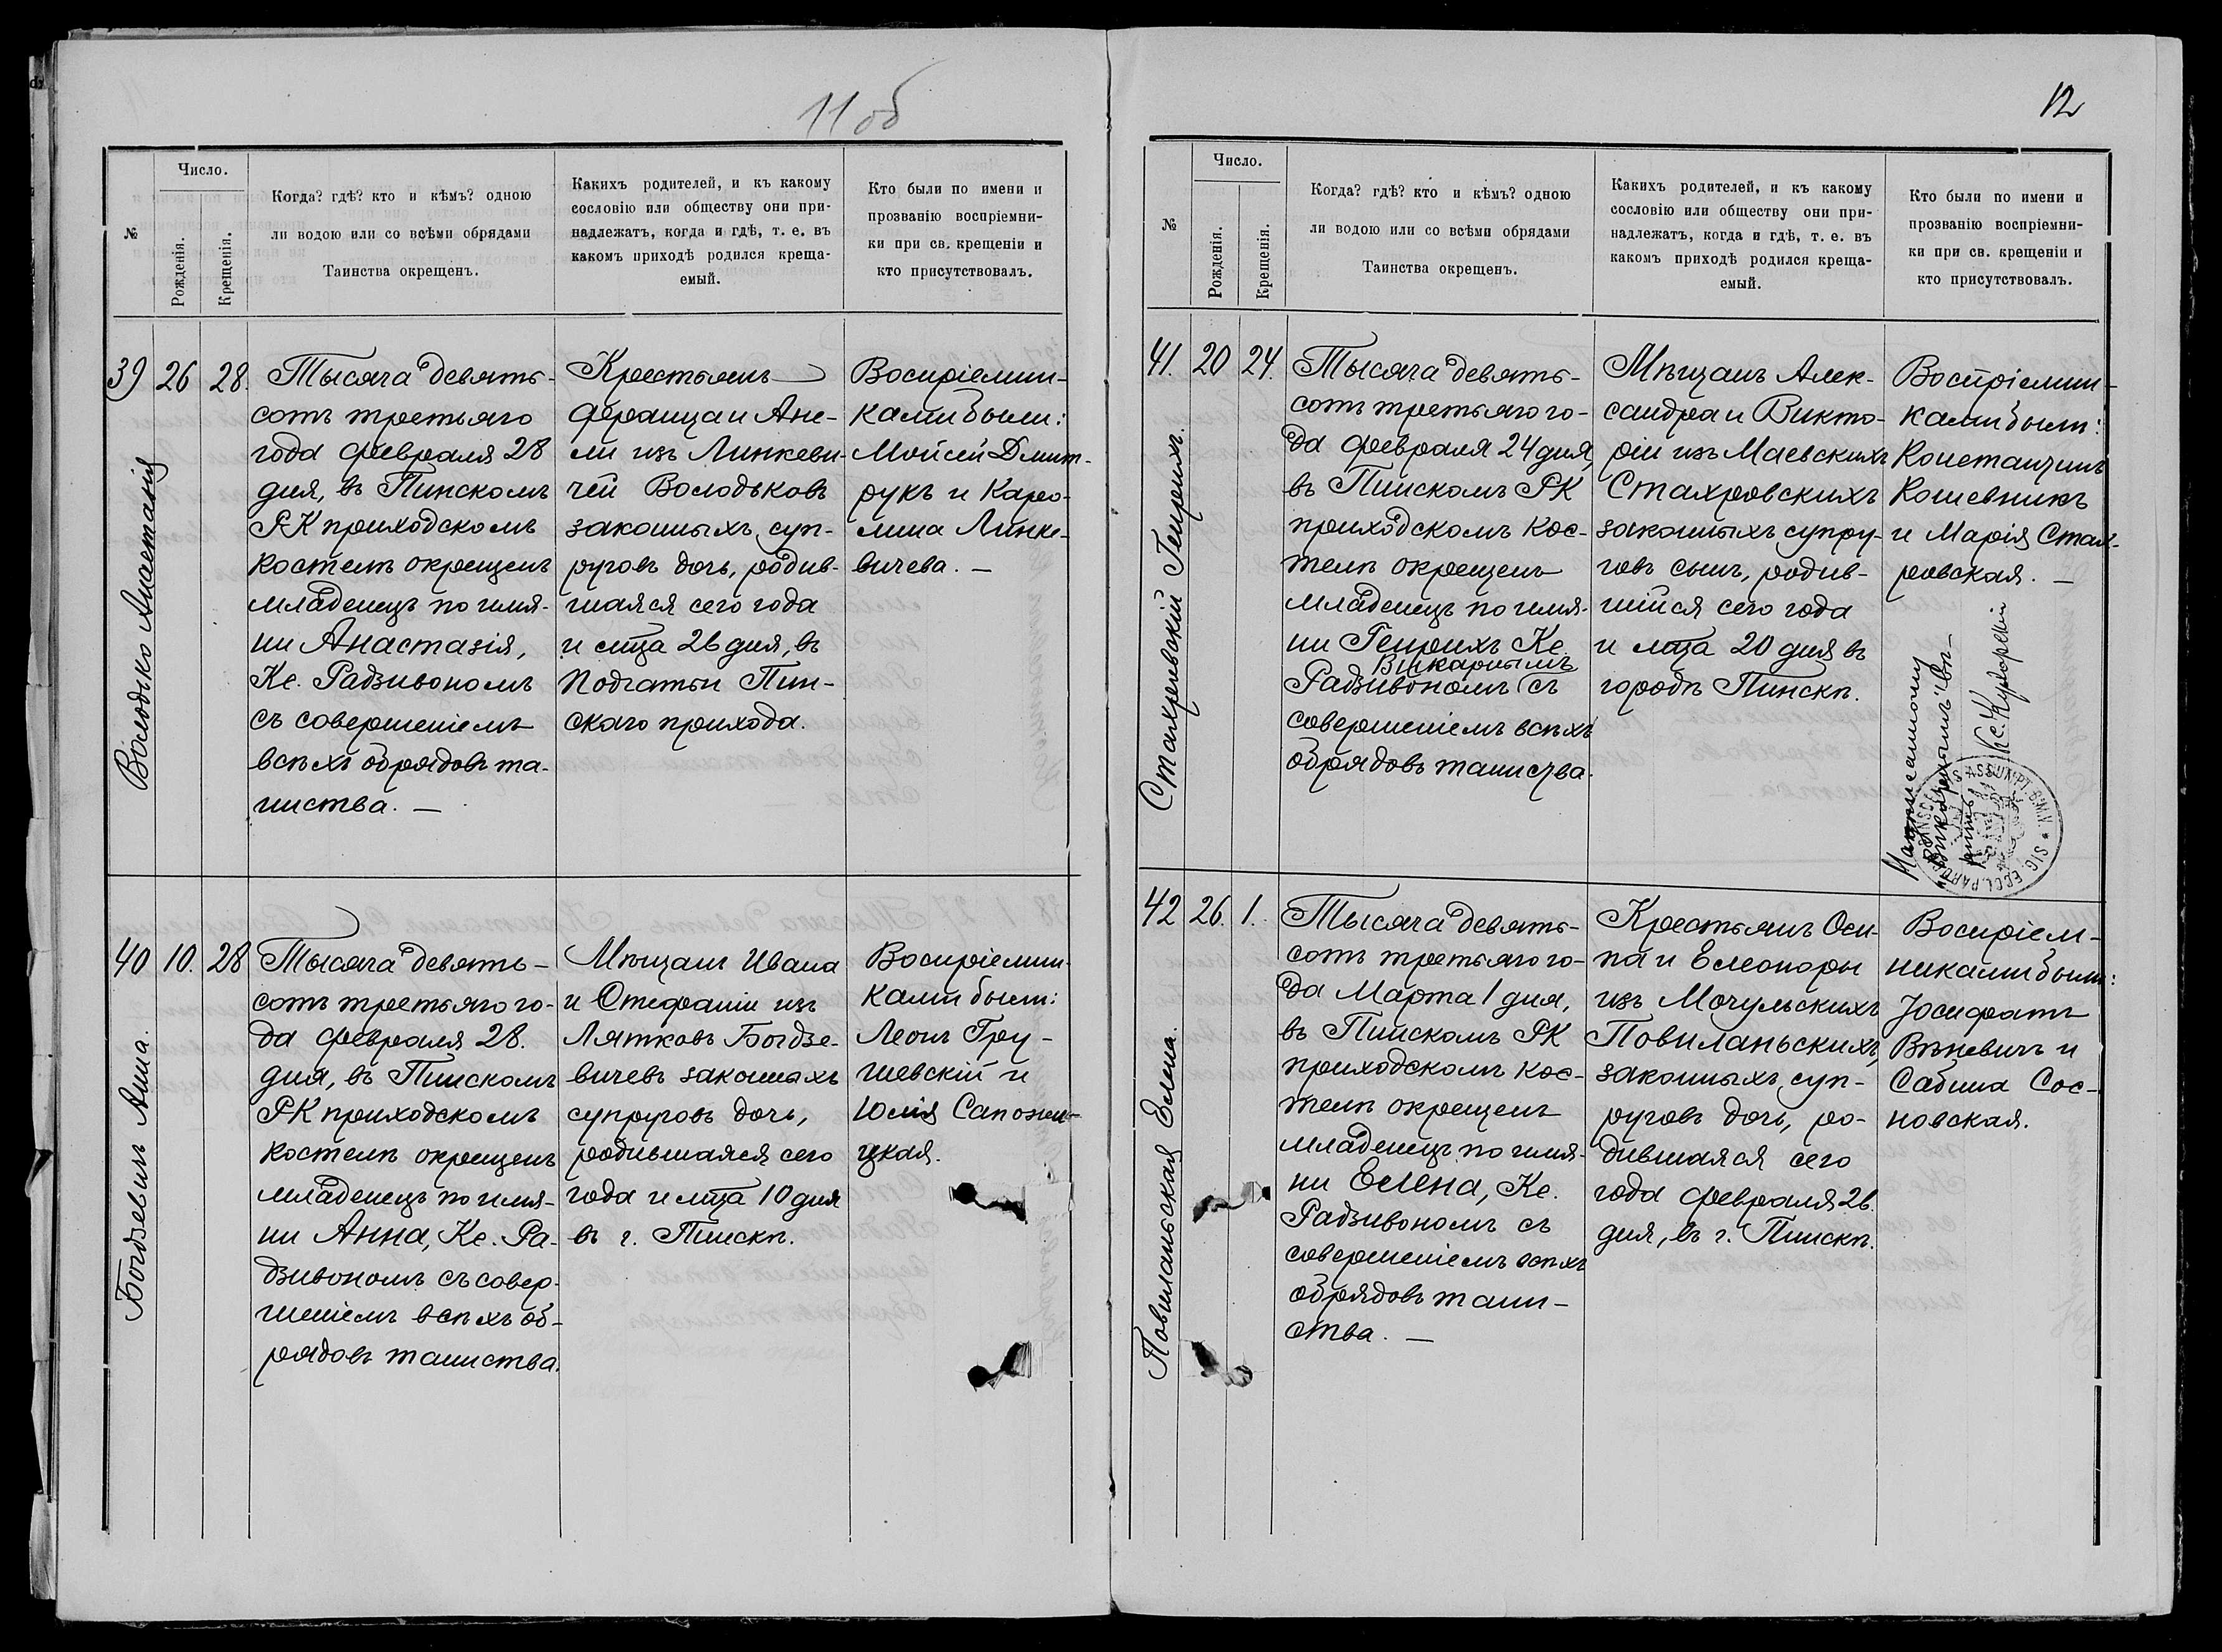 11 об
№
Число.
Рожденія.
Крещенія.
Когда? гдѣ? кто и кѣмъ? одною
ли водою или со всѣми обрядами
Таинства окрещенъ.
Какихъ родителей, и къ какому
сословію или обществу они при-
надлежатъ, когда и гдѣ, т. е. въ
какомъ приходѣ родился креща-
емый.
Кто были по имени и
прозванію воспріемни-
ки при св. крещеніи и
кто присутствовалъ.
39 26 28.
Володько Анастасія
Тысяча девять-
сотъ третьяго
года февраля 28
дня, въ Пинскомъ
РК приходскомъ
костелѣ окрещенъ
младенецъ по имя-
ни Анастазія,
Кс. Радзивономъ
съ совершеніемъ
всѣхъ обрядовъ та-
инства. —
Крестьянъ
Франца и Ане-
ли изъ Линкеви-
чей Володьковъ
законныхъ суп-
руговъ дочь, родив-
шаяся сего года
и мца 26 дня, въ
Подгатьи Пин-
скаго прихода.
Воспріемни-
ками были:
Мойсей Дмит-
рукъ и Каро-
лина Линке-
вичева. —
40 10. 28
Богдзевичъ Анна.
Тысяча девять-
сотъ третьяго го-
да февраля 28.
дня, въ Пинскомъ
РК приходскомъ
костелѣ окрещенъ
младенецъ по имя-
ни Анна, Кс. Ра-
дзивономъ съ совер-
шеніемъ всѣхъ об-
рядовъ таинства.
Мѣщанъ Ивана
и Стефаніи изъ
Лятковъ Богдзе-
вичевъ законныхъ
супруговъ дочь,
родившаяся сего
года и мца 10 дня
въ г. Пинскѣ.
Воспріемни-
ками были:
Леонъ Гру-
шевскій и
Юлія Сапожни-
цкая.
12
№
Число.
Рожденія.
Крещенія.
Когда? гдѣ? кто и кѣмъ? одною
ли водою или со всѣми обрядами
Таинства окрещенъ.
Какихъ родителей, и къ какому
сословію или обществу они при-
надлежатъ, когда и гдѣ, т. е. въ
какомъ приходѣ родился креща-
емый.
Кто были по имени и
прозванію воспріемни-
ки при св. крещеніи и
кто присутствовалъ.
41. 20 24.
Генрихъ.
Тысяча девять-
сотъ третьяго го-
да февраля 24 дня,
въ Пинскомъ РК
приходскомъ кос-
телѣ окрещенъ
младенецъ по имя-
ни Генрихъ Кс.
Викарнымъ
Радзивономъ съ
совершеніемъ всѣхъ
обрядовъ таинства.
Мѣщанъ Алек-
сандра и Викто-
ріи изъ Маевскихъ
Стахровскихъ
законныхъ супру-
говъ сынъ, родив-
шійся сего года
и мца 20 дня въ
городѣ Пинскѣ.
Воспріемни-
ками были:
Константинъ
Кошевникъ
и Марія Стах-
ровская. —
Надписанному
"Викарнымъ" вѣ-
рить
SIG. ECCL. PAR. PINSCENSIS ASSUMPT. B.M.V.
42 26. 1.
Повиланьская Елена.
Тысяча девять-
сотъ третьяго го-
да Марта 1 дня,
въ Пинскомъ РК
приходскомъ кос-
телѣ окрещенъ
младенецъ по имя-
ни Елена, Кс.
Радзивономъ съ
совершеніемъ всѣхъ
обрядовъ таин-
ства. —
Крестьянъ Оси-
па и Елеоноры
изъ Мочульскихъ
Повиланьскихъ,
законныхъ суп-
руговъ дочь, ро-
дившаяся сего
года февраля 26.
дня, въ г. Пинскѣ.
Воспріем-
никами были:
Іосифатъ
Вѣневичъ и
Сабина Сос-
новская.